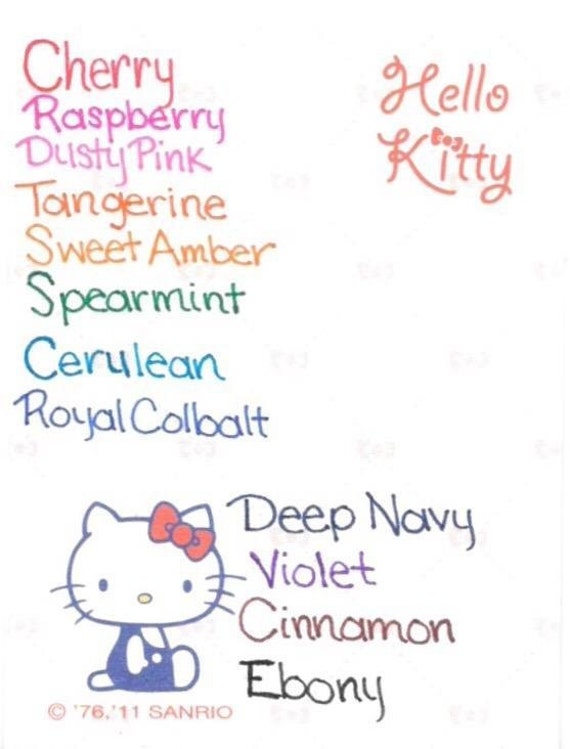 Cherry
Raspberry
Dusty Pink
Tangerine
Sweet Amber
Spearmint
Cerulean
Royal Colbalt
Hello
Kitty
Deep Navy
Violet
Cinnamon
Ebony
© '76,'11 SANRIO